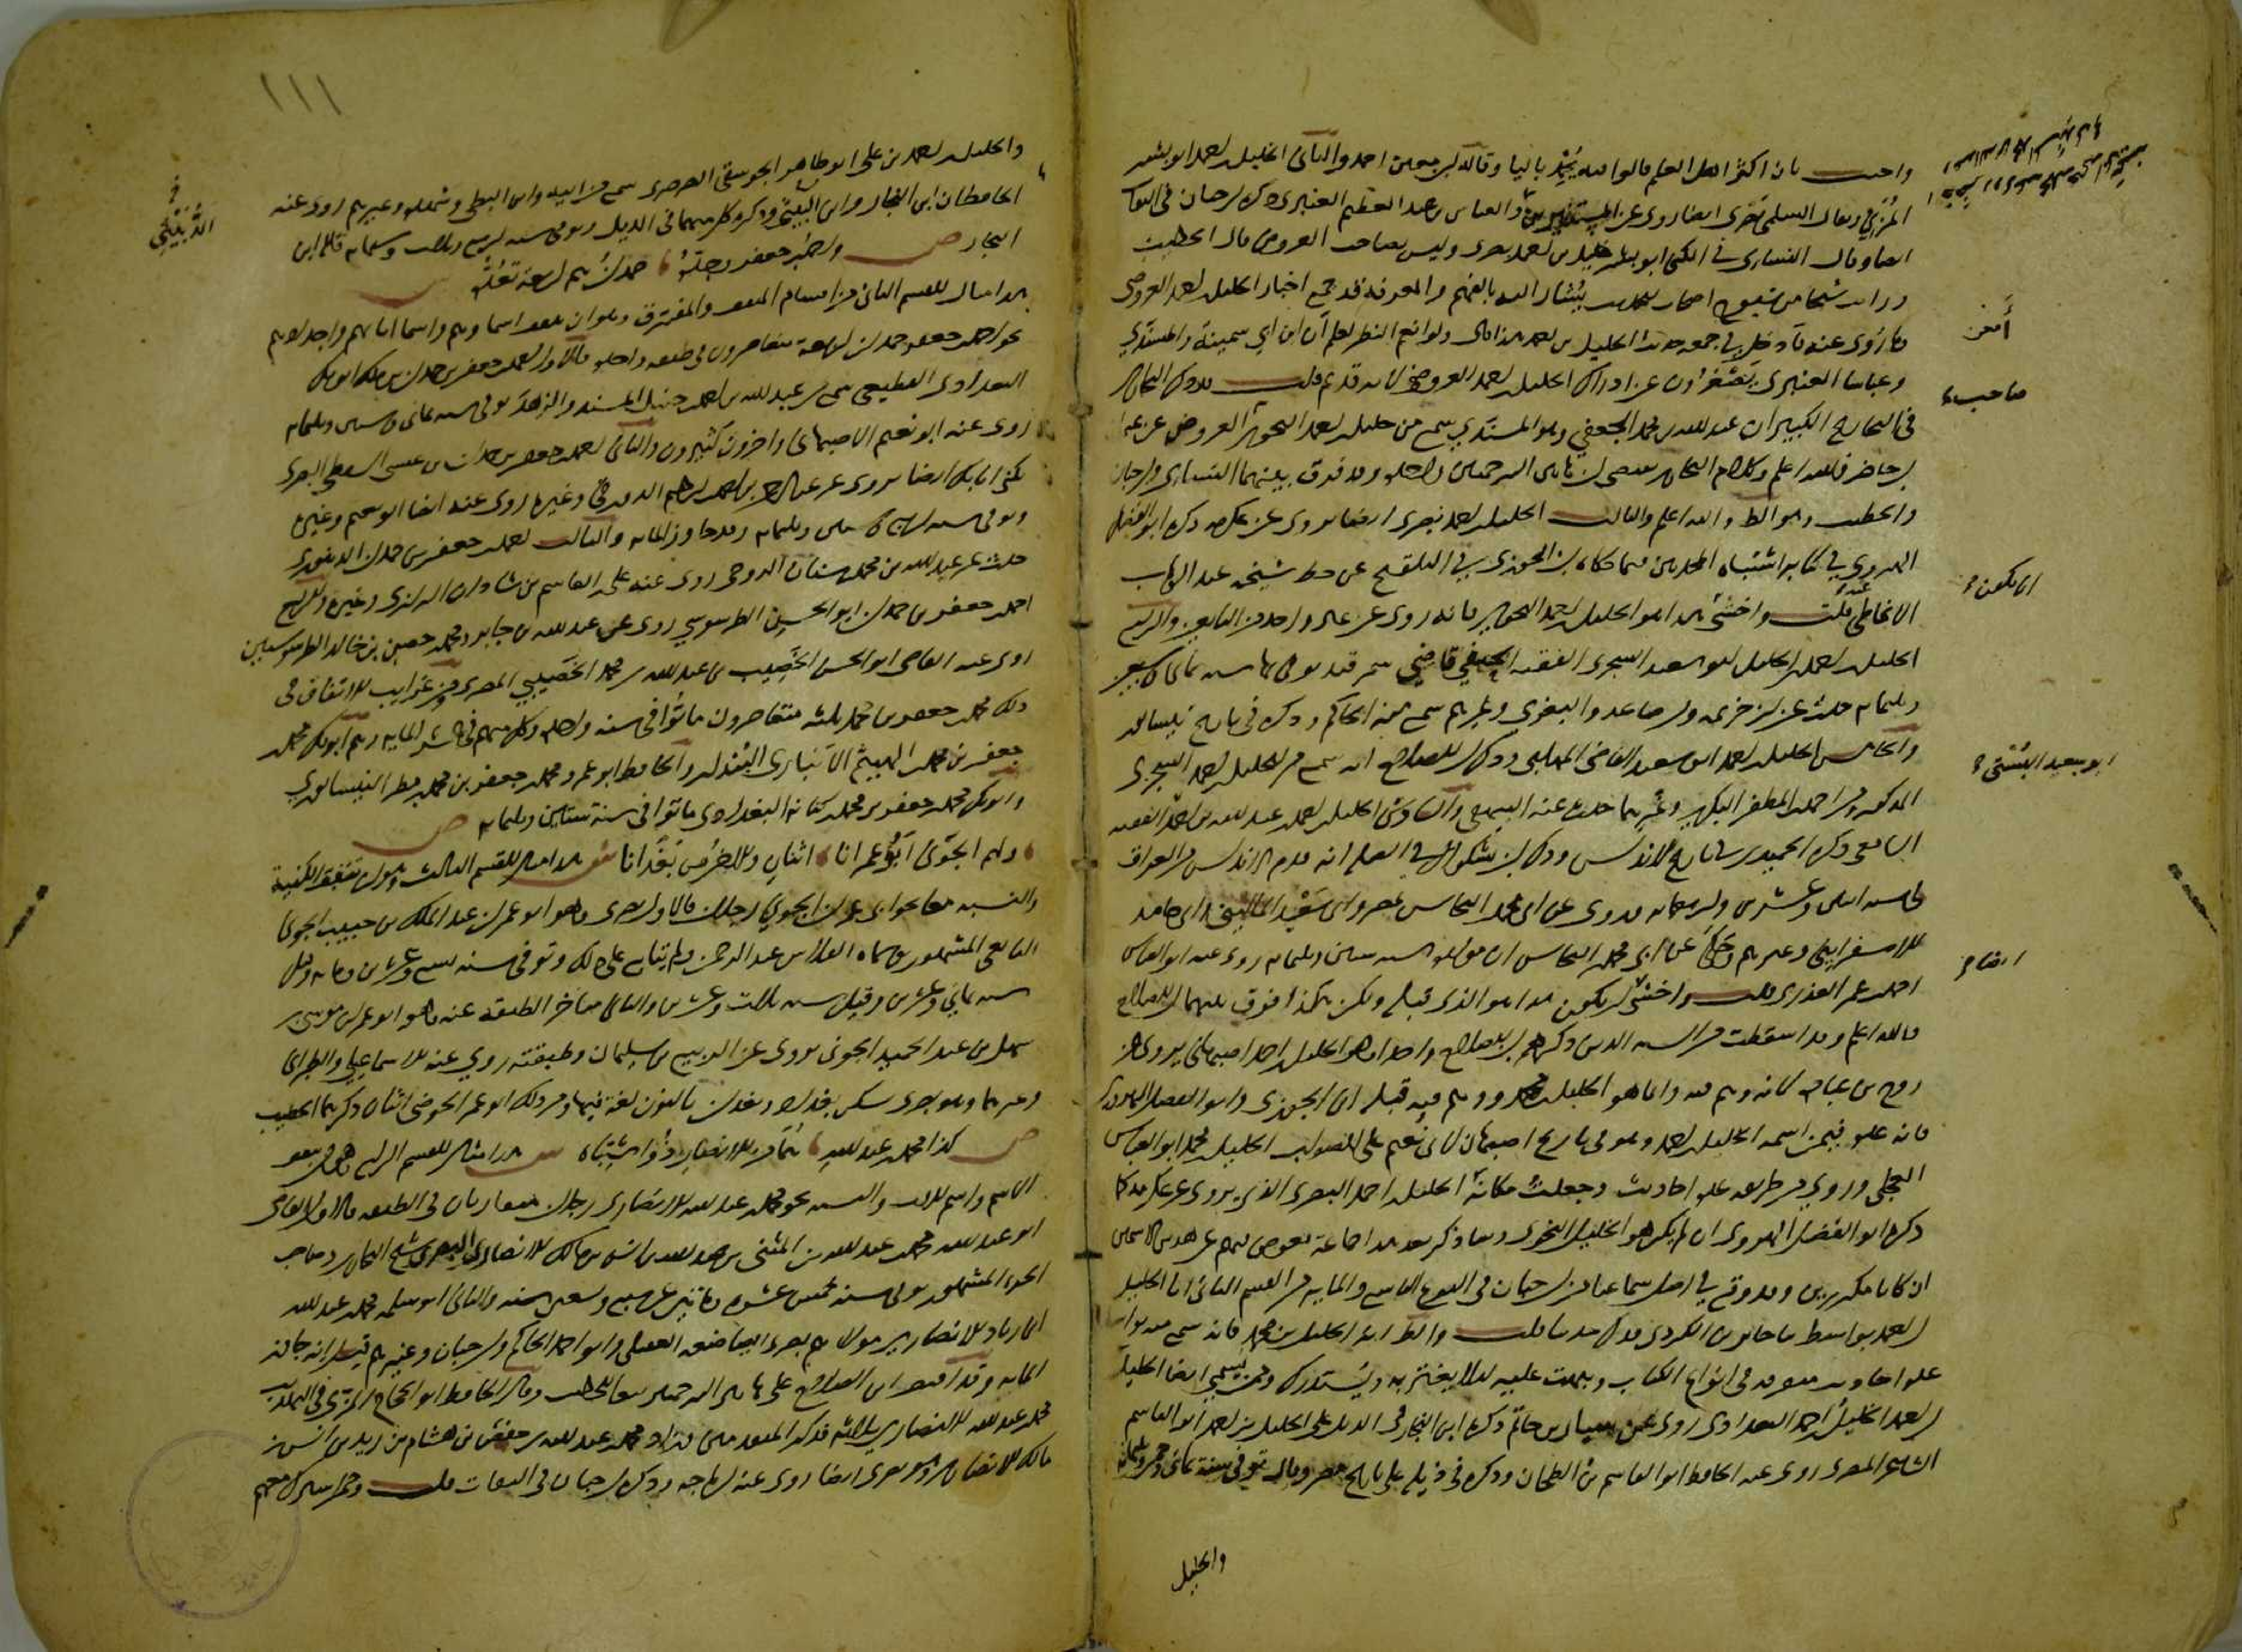 واجيب بان اكثر اهل العلم قالوا فيه يحمد باليا وقاله ابن معين احمد والثاني الخليل بن احمد ابو بشر
المزني ويقال السلمي بصري ايضا روى عن المستنير بن والعباس بن عبد العظيم العنبري ذكره ابن حبان في الثقات
ايضا وقال النسائي في الكنى ابو بشر خليل بن احمد بصري وليس بصاحب العروض قال الخطيب
ورايت شيخا من شيوخ اصحاب الحديث يشار اليه بالفهم والمعرفة قد جمع اخبار الخليل بن احمد العروضي
وما روى عنه فادخل في جمعه هذا الخليل بن احمد هذا قال ولو انعم النظر لعلم ان ابن ابي سمينة والمسندي
وعباسا العنبري يصغرون عن ادراك الخليل بن احمد العروضي لانه قديم قلت قد ذكر البخاري
في التاريخ الكبير ان عبد الله بن محمد الجعفي وهو المسندي سمع من خليل بن احمد النحوي العروضي عن عثمان
بن حاضر فالله اعلم وكلام البخاري يقتضي ان هاتين الترجمتين واحدة وقد فرق بينهما النسائي وابن حبان
والخطيب وهو الظاهر والله اعلم والثالث الخليل بن احمد بصري ايضا يروي عن عكرمة ذكره ابو الفضل
الهروي في كتابه اشتباه المحدثين فيما حكاه ابن الجوزي في التلقيح عن خط شيخه عبد الوهاب
الانماطي عنه قلت واخشى هذا هو الخليل بن احمد النحوي فانه روى عن غير واحد من التابعين والرابع
الخليل بن احمد بن الخليل ابو سعيد السجزي الفقيه الحنفي قاضي سمرقند توفي بها سنة ثمان وسبعين
وثلثماية حدث عن ابن خزيمة وابن صاعد والبغوي وغيرهم سمع منه الحاكم وذكره في تاريخ نيسابور
والخامس الخليل بن احمد ابو سعيد القاضي المهلبي وذكر ابن الصلاح انه سمع من الخليل بن احمد السجزي
المذكور ومن احمد بن المظفر البكري وغيرهما حدث عنه البيهقي والسادس الخليل بن احمد بن عبد الله بن احمد الفقيه
الشافعي ذكره الحميدي في تاريخ الاندلس وذكره ابن بشكوال في الصلة انه قدم الاندلس من العراق
في سنة اثنتين وعشرين واربعماية وروى عن ابي محمد ابن النحاس بمصر وابي سعيد الماليني وابي حامد
الاسفرايني وغيرهم وحكى عن ابي محمد بن النحاس ان مولده سنة ستين وثلثماية روى عنه ابو العباس
احمد بن عمر العذري قلت واخشى ان يكون هذا هو الذي قبله ولكن هكذا فرق بينهما ابن الصلاح
فالله اعلم وقد اسقطت من الستة الذين ذكرهم ابن الصلاح واحدا وهو الخليل بن احمد اصبهاني يروي عن
روح بن عبادة لانه وهم فيه وانما هو الخليل بن محمد ووهم فيه قبله ابن الجوزي وابو الفضل الهروي
فانه عده فيمن اسمه الخليل بن احمد وهو في تاريخ اصبهان لابي نعيم على الصواب الخليل بن محمد ابو العباس
العجلي وروى من طريقه عدة احاديث وجعلت مكانه الخليل بن احمد البصري الذي يروي عن عكرمة كما
ذكره ابو الفضل الهروي ان لم يكن هو الخليل النحوي وها انا اذكر بعد هذا جماعة يعوض بهم عن هذين الاسمين
ان كانا مكررين وقد وقع في اصل سماعنا من ابن حبان في النوع التاسع والماية من القسم الثاني انا الخليل
ابن احمد بواسط ثنا جابر بن الكردي فذكر حديثا قلت والظاهر انه الخليل بن محمد فانه سمع منه بواسط
عدة احاديث متفرقة في انواع الكتاب ونبهت عليه لئلا يغتر به ويستدرك ومن يسمى ايضا الخليل
ابن احمد الخليل بن احمد البغدادي روى عن سيار بن حاتم ذكره ابن النجار في الذيل على الخليل بن احمد ابو القاسم
الشاعر المصري روى عنه الحافظ ابو القاسم بن الطحان وذكره في ذيله على تاريخ مصر وقال توفي سنة ثمان وخمسين وثلثمائة
والخليل
أمعن
صاحب
ان يكون
ابو سعيد البستي
ايضا
١١١
والخليل بن احمد بن علي ابو طاهر الجوسقي الصرصري سمع من ابيه وابن البطي وشهدة وغيرهم روى عنه
الحافظان ابن النجار وابن الدبيثي وذكره كل منهما في الذيل وتوفي سنة اربع وثلاثين وستماية قاله ابن
النجار ص واحمد بن جعفر وجده ، حمدان هم اربعة تعده
ش هذا مثال للقسم الثاني من اقسام المتفق والمفترق وهو ان يتفق اسماوهم واسما ابائهم واجدادهم
نحو احمد بن جعفر بن حمدان اربعة متعاصرون في طبقة واحدة فالاول احمد بن جعفر بن حمدان بن مالك ابو بكر
البغدادي القطيعي سمع من عبد الله بن احمد بن حنبل المسند والزهد توفي سنة ثمان وستين وثلثماية
روى عنه ابو نعيم الاصبهاني واخرون كثيرون والثاني احمد بن جعفر بن حمدان بن عيسى السقطي البصري
يكنى ابا بكر ايضا يروي عن عبد الله بن احمد بن ابراهيم الدورقي وغيره روى عنه ايضا ابو نعيم وغيره
وتوفي سنة اربع وستين وثلثماية وقد جاوز الماية والثالث احمد بن جعفر بن حمدان الدينوري
حدث عن عبد الله بن محمد بن سنان الروحي روى عنه علي بن القاسم بن شاذان الرازي وغيره والرابع
احمد بن جعفر بن حمدان ابو الحسن الطرسوسي روى عن عبد الله بن جابر ومحمد بن حصن بن خالد الطرسوسيين
روى عنه القاضي ابو الحسن الخصيب بن عبد الله بن محمد الخصيبي المصري ومن غرايب الاتفاق في
ذلك محمد بن جعفر بن محمد ثلثة متعاصرون ماتوا في سنة واحدة وكل منهم في عشر الماية وهم ابو بكر محمد بن
جعفر بن محمد بن الهيثم الانباري البندار والحافظ ابو عمرو محمد بن جعفر بن محمد بن مطر النيسابوري
وابو بكر محمد بن جعفر بن محمد بن كنانة البغدادي ماتوا في سنة ستين وثلثماية ص
، ولهم الجوني أبو عمرانا ، اثنان والاخر من بغدانا ش هذا مثال للقسم الثالث وهو ان تتفق الكنية
والنسبة معا نحو ابي عمران الجوني رجلان فالاول بصري وهو ابو عمران عبد الملك بن حبيب الجوني
التابعي المشهور وسماه الفلاس عبد الرحمن ولم يتابع على ذلك وتوفي سنة تسع وعشرين وماية وقيل
سنة ثماني وعشرين وقيل سنة ثلاث وعشرين والثاني متاخر الطبقة عنه وهو ابو عمران موسى بن
سهل بن عبد الحميد الجوني يروي عن الربيع بن سليمان وطبقته روى عنه الاسماعيلي والطبراني
وغيرهما وهو بصري سكن بغداد وبغدان بالنون لغة فيها ومن ذلك ابو عمر الحوضي اثنان ذكرهما الخطيب
ص كذا محمد بن عبد الله ، هما من الانصار ذو اشتباه ش هذا مثال للقسم الرابع وهو ان يتفق
الاسم واسم الاب والنسبة نحو محمد بن عبد الله الانصاري رجلان متقاربان في الطبقة فالاول القاضي
ابو عبد الله محمد بن عبد الله بن المثنى بن عبد الله بن انس بن مالك الانصاري البصري شيخ البخاري وصاحب
الجزء المشهور توفي سنة خمس عشرة وماتين عن سبع وتسعين سنة والثاني ابو سلمة محمد بن عبد الله
ابن زياد الانصاري مولاهم بصري ايضا ضعفه العقيلي وابو احمد الحاكم وابن حبان وغيرهم قيل انه جاوز
الماية وقد اقتصر ابن الصلاح على هاتين الترجمتين تبعا للخطيب وقال الحافظ ابو الحجاج المزي في التهذيب
محمد بن عبد الله الانصاري ثلاثة فذكر المتقدمين وزاد محمد بن عبد الله بن حفص بن هشام بن زيد بن انس بن
مالك الانصاري وهو بصري ايضا روى عنه ابن ماجه وذكره ابن حبان في الثقات قلت وممن يشترك معهم